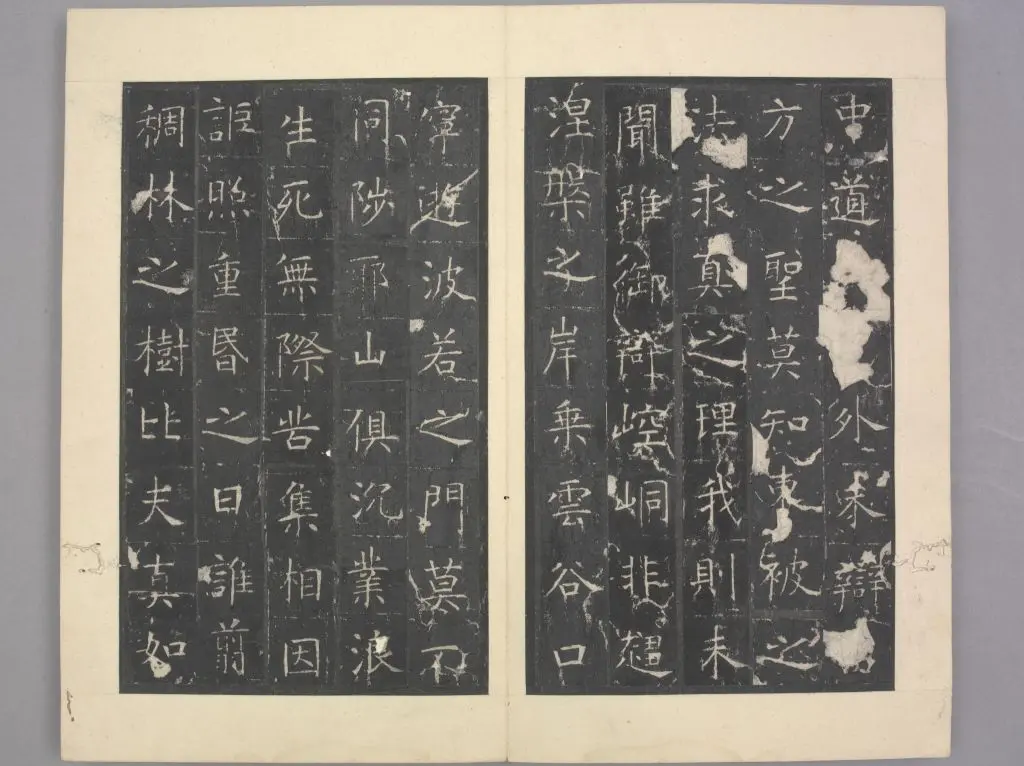 中道外未辯
方之聖莫知東被之
法求真之理我則未
聞雖御辯崆峒非
涅槃之岸乘雲谷口
寧遊波若之門莫不
同陟耶山俱沉業浪
生死無際呰集相因
詎照重昏之日誰翦
稠林之樹比夫真如